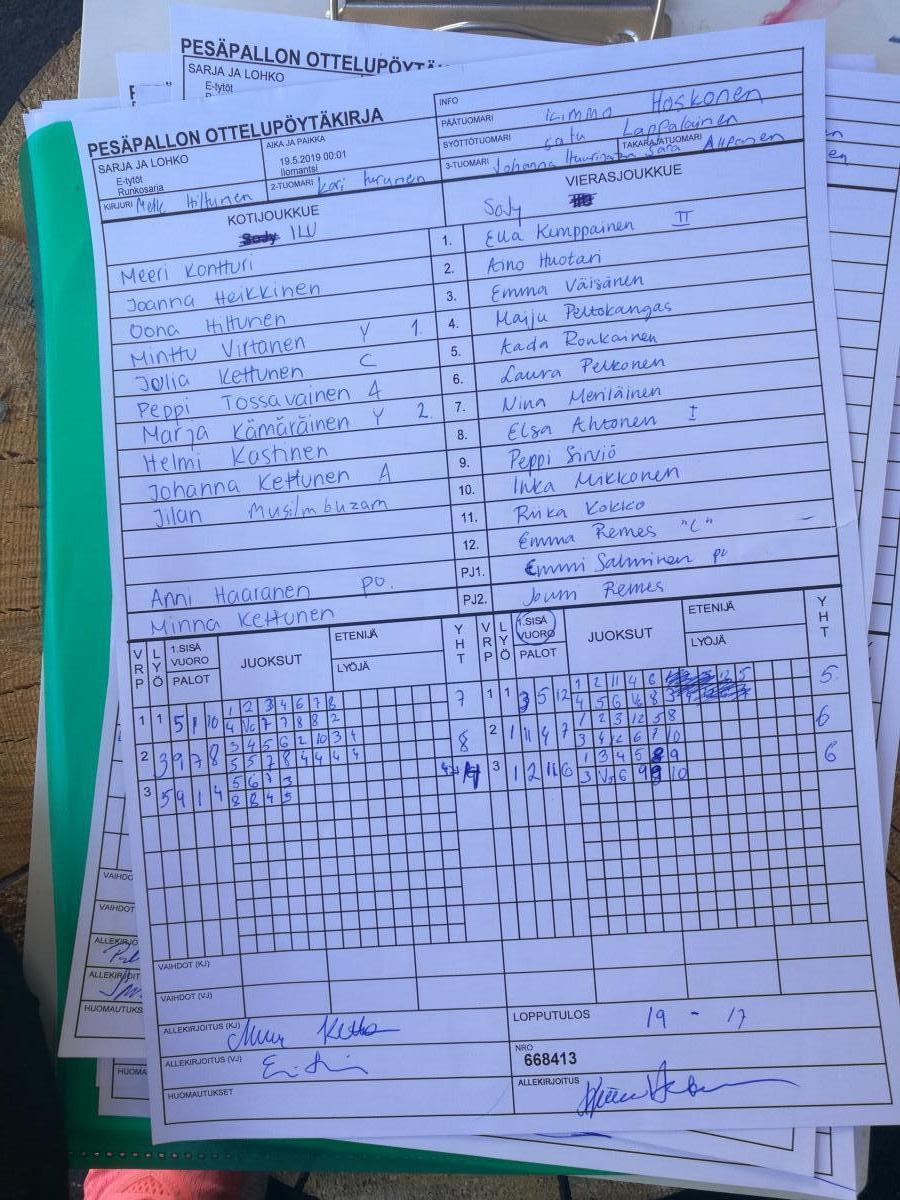 PESÄPALLON OTTELUPÖYTÄ
SARJA JA LOHKO
E-tytöt
PESÄPALLON OTTELUPÖYTÄKIRJA
SARJA JA LOHKO
E-tytöt
Runkosarja
AIKA JA PAIKKA
19.5.2019 00:01
Ilomantsi
INFO
PÄÄTUOMARI Kimmo Hoskonen
SYÖTTÖTUOMARI Satu Lappalainen
KIRJURI Hiltunen
2-TUOMARI Kari Turunen
3-TUOMARI Johanna
TAKARAJATUOMARI Sara
KOTIJOUKKUE
ILU
VIERASJOUKKUE
SoJy
Meeri Kontturi 1. Ella Kemppainen II
Joanna Heikkinen 2. Aino Huotari
Oona Hiltunen 3. Emma Väisänen
Minttu Virtanen Y 1. 4. Maiju Peltokangas
Jolia Kettunen C 5. Aada Ronkainen
Peppi Tossavainen A 6. Laura Pelkonen
Marja Kämäräinen Y 2. 7. Nina Meriläinen
Helmi Kastinen 8. Elsa Ahtonen I
Johanna Kettunen A 9. Peppi Sirviö
Jilan 10. Inka Mikkonen
11. Riika Kokko
12. Emma Remes "C"
Anni Haaranen PJ1. Emmi Salminen
Minna Kettunen PJ2. Jouni Remes
VRP LYÖ 1.SISÄ VUORO PALOT JUOKSUT ETENIJÄ LYÖJÄ YHT VRP LYÖ 1.SISÄ VUORO PALOT JUOKSUT ETENIJÄ LYÖJÄ YHT
1 1 5 1 10 1 2 3 4 6 7 8 7
2 3 9 7 8 3 4 5 6 2 10 3 4 8
5 5 7 8 4 4 4 4
3 5 9 1 4 5 6 7 3 4
8 8 4 5
1 1 3 5 12 1 2 11 4 6 5
2 1 11 4 7 1 2 3 12 5 8 6
3 1 2 11 6 1 3 4 5 8 9 6
VAIHDOT (KJ)
VAIHDOT (VJ)
ALLEKIRJOITUS (KJ)
ALLEKIRJOITUS (VJ)
HUOMAUTUKSET
LOPPUTULOS 19 - 17
NRO
668413
ALLEKIRJOITUS
VAIHDOT
VAIHDOT
ALLEKIRJO
ALLEKIRJOIT
HUOMAUTUKS
HUOMA